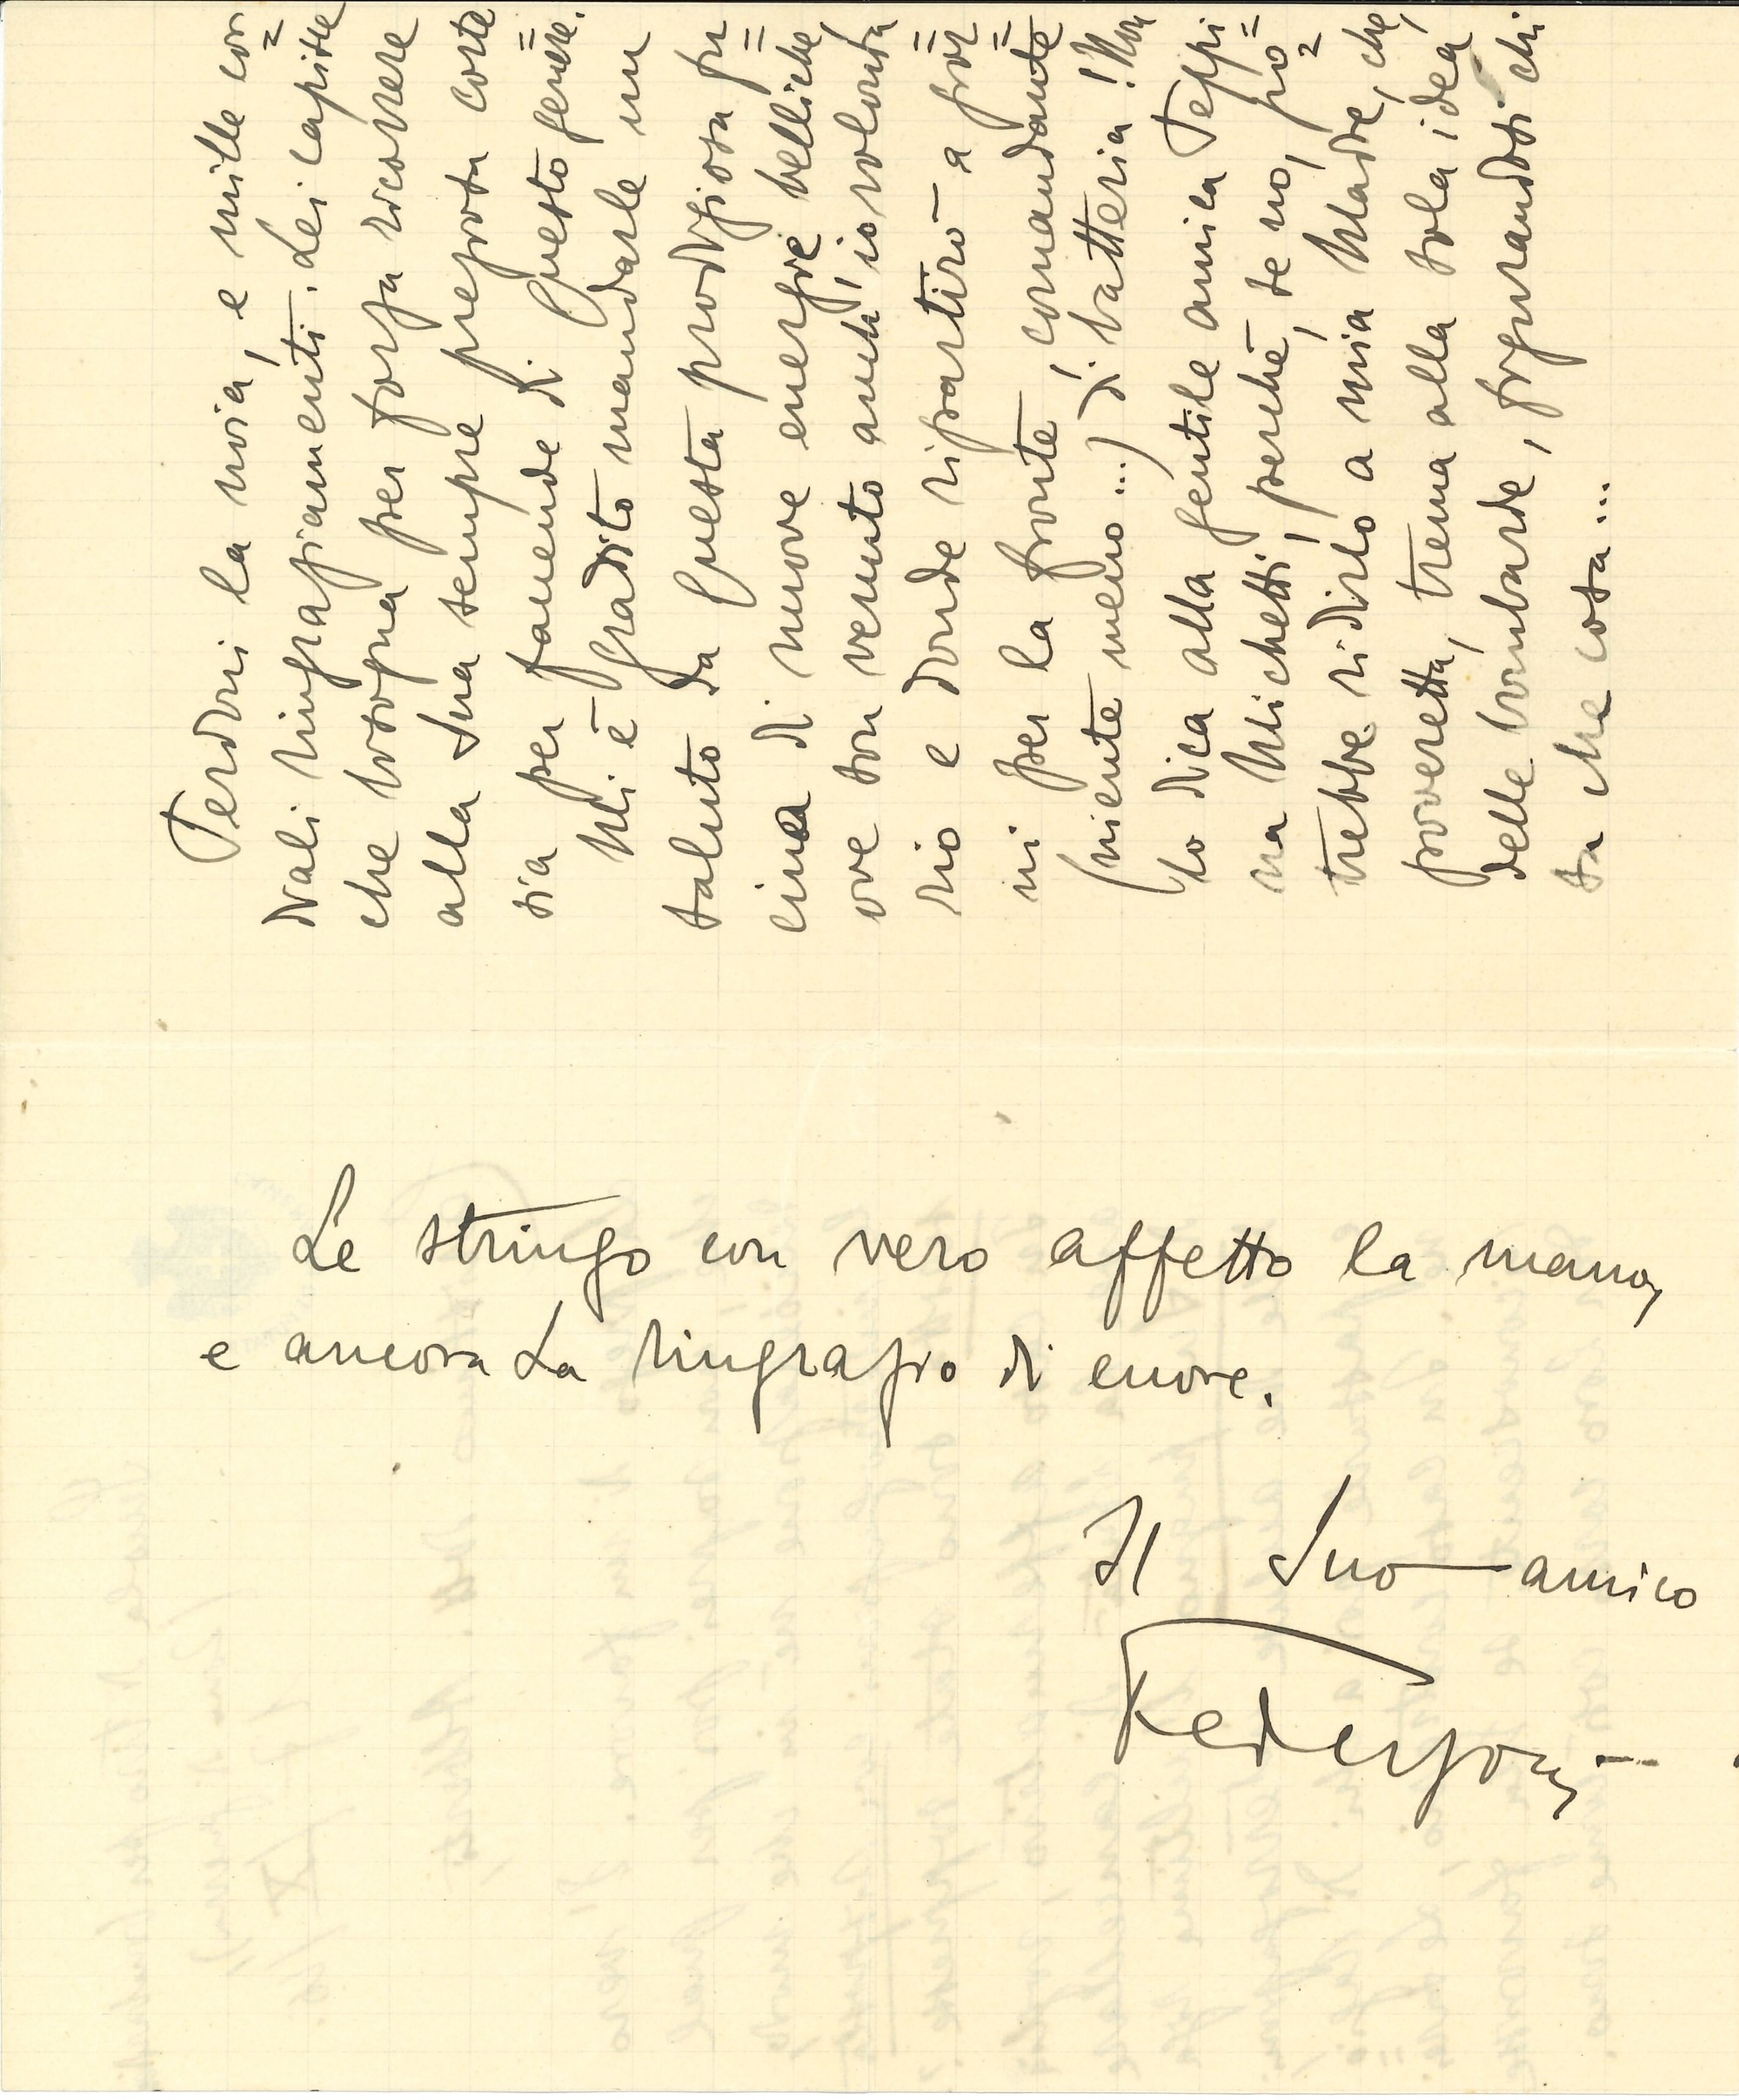 Perdoni la noia, e mille cor=
diali ringraziamenti. Lei capisce
che bisogna per forza ricorrere
alla Sua sempre preziosa corte=
sia per faccende di questo genere.
Mi è gradito mandarle un
saluto da questa prodigiosa fu=
cina di nuove energie belliche,
ove son venuto anch'io volonta=
rio e donde ripartirò a gior=
ni per la fronte, comandante
(niente meno...) di batteria! Non
lo dica alla gentile amica Teppi=
na Michetti, perché, se no, po=
trebbe ridirlo a mia Madre, che,
poveretta, trema alla sola idea
delle bombarde, figurandosi chi
sa che cosa...
Le stringo con vero affetto la mano,
e ancora La ringrazio di cuore.
Il Suo amico
Federzoni